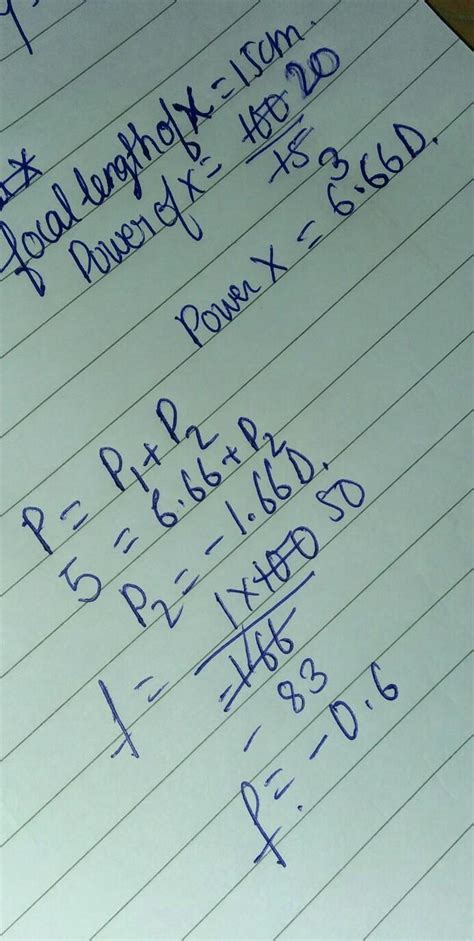 focal length of X = 15cm.
Power of X = 100 20
15 3
Power X = 6.66D.
P = P₁ + P₂
5 = 6.66 + P₂
P₂ = -1.66D.
f = 1 x 100 50
-166
- 83
f = -0.6